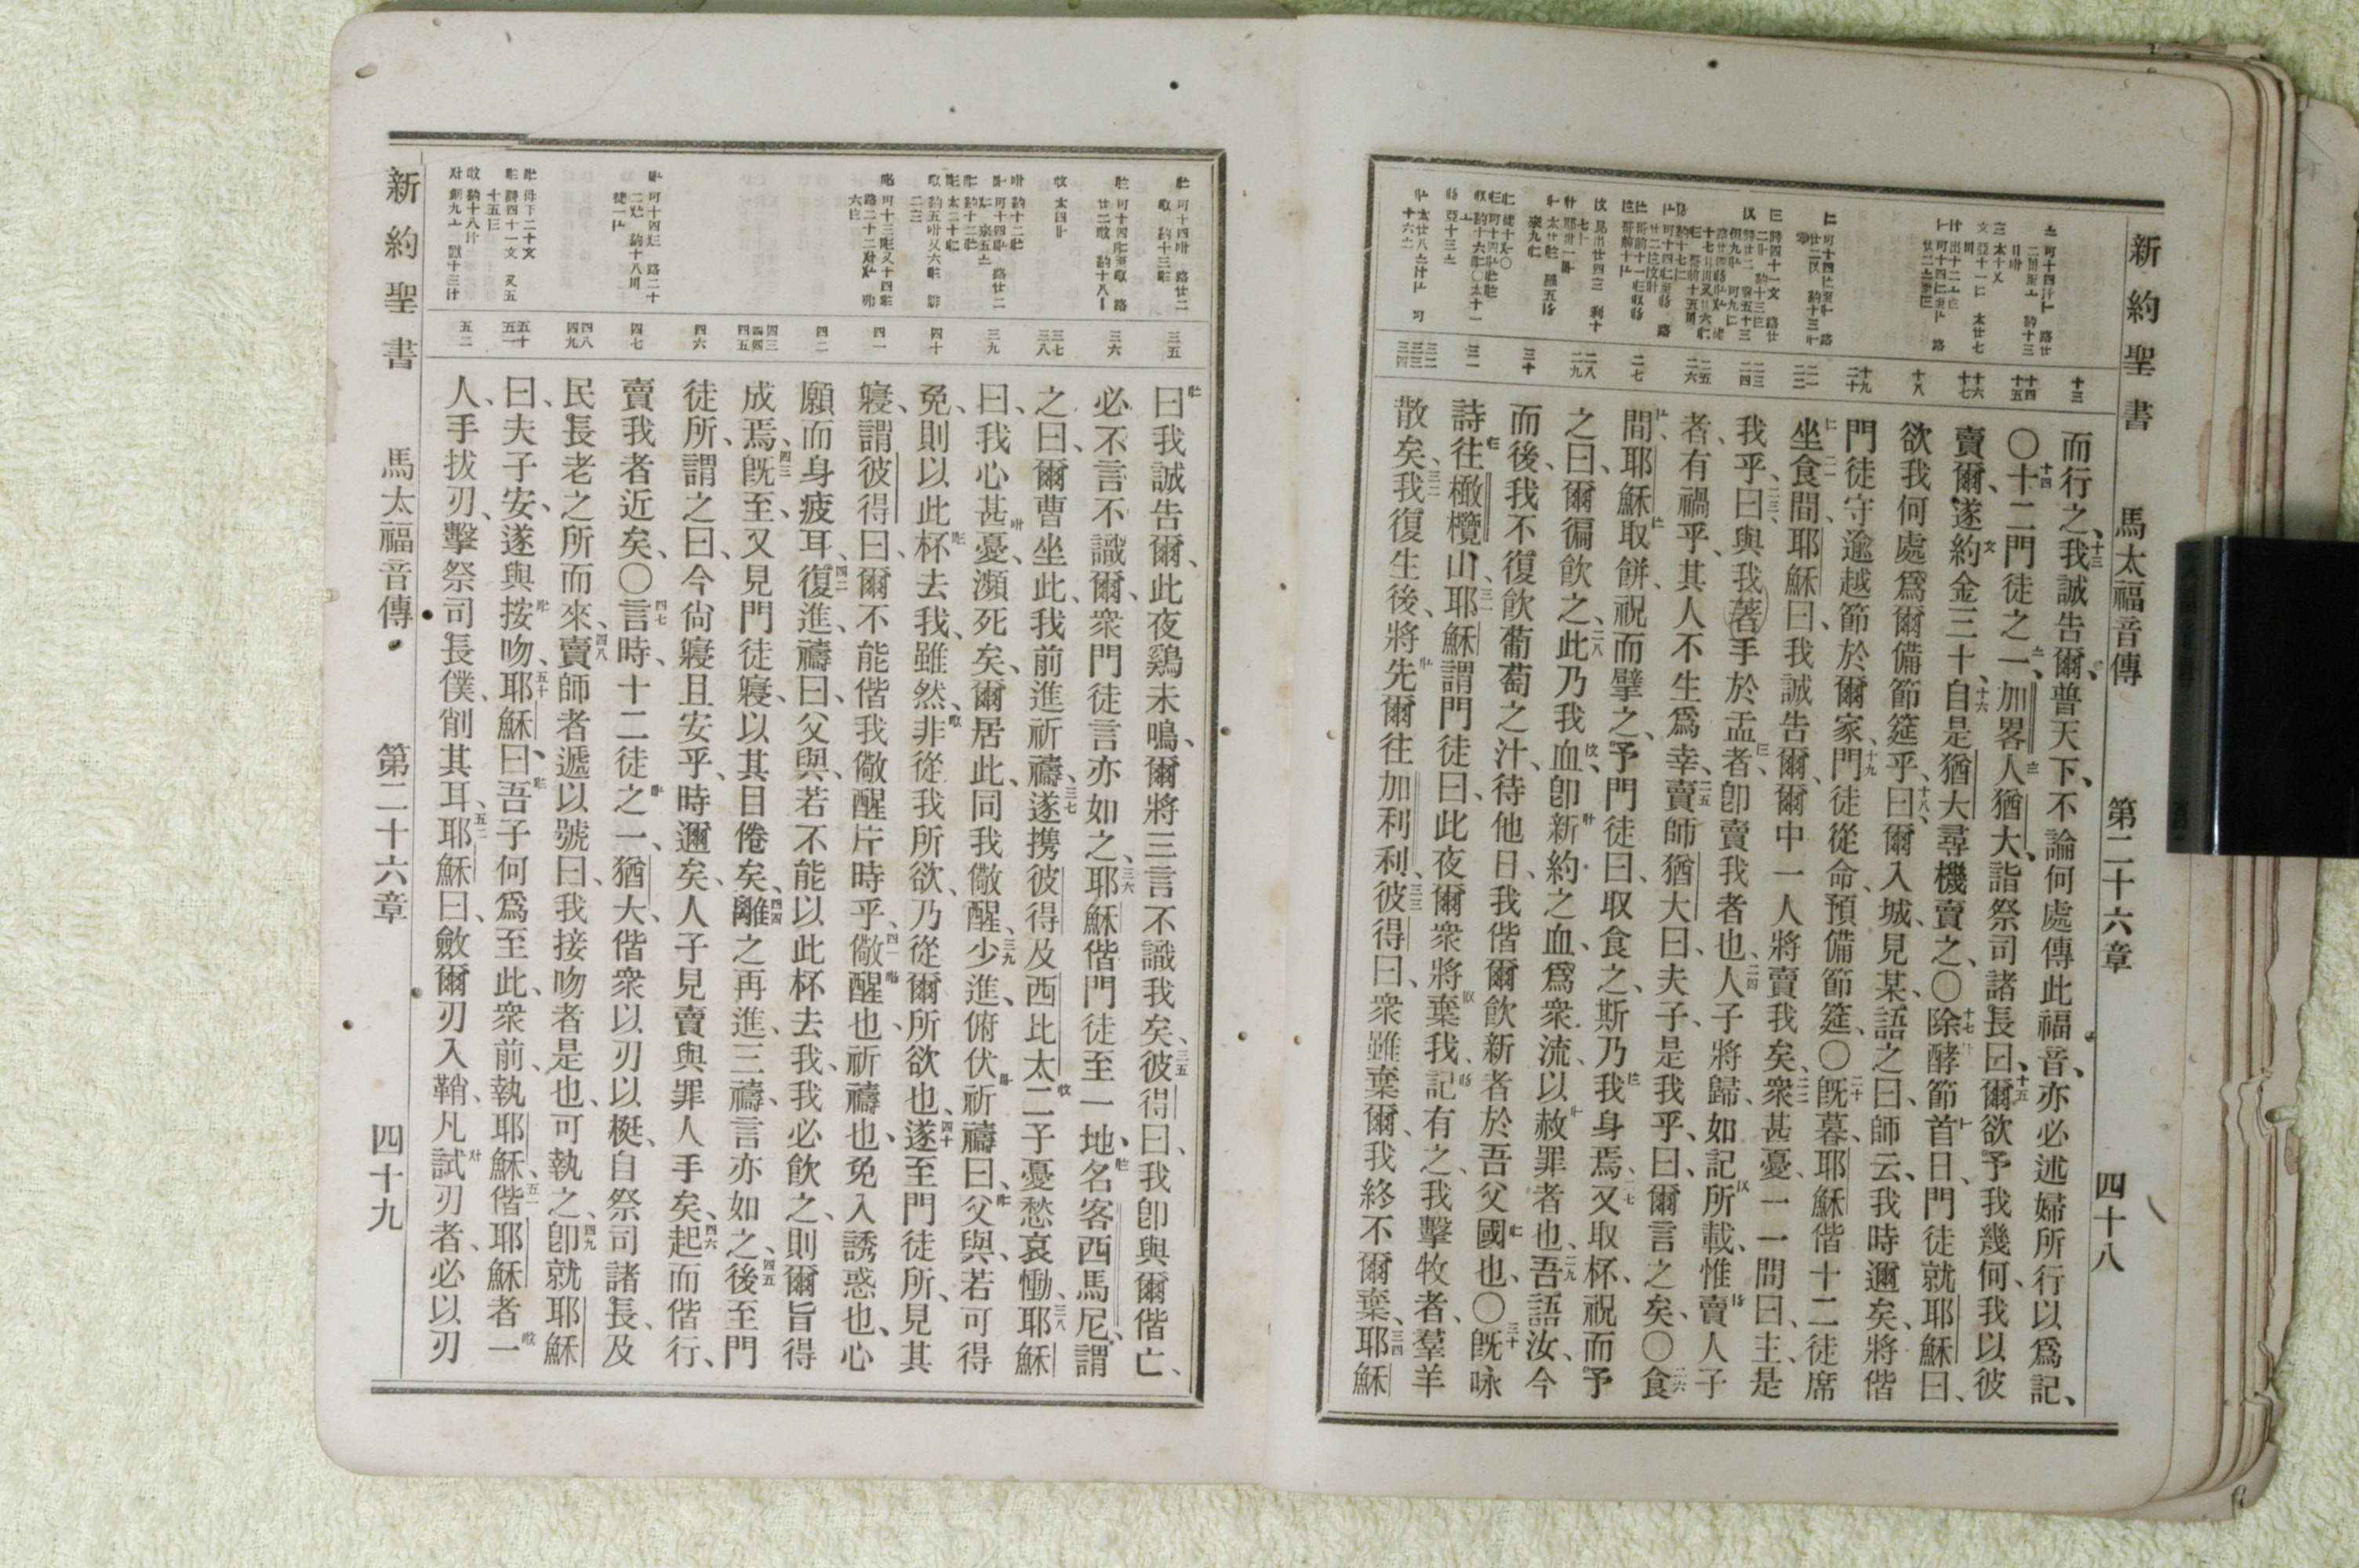 新約聖書 馬太福音傳 第二十六章 四十八
十三
十四 十五
十六 十七
十八
十九 二十
二一 二二
二三 二四
二五 二六
二七
二八 二九
三十
三一
三二 三三 三四
而行之、十三我誠告爾、普天下、不論何處傳此福音、亦必述婦所行以爲記、
〇十四十二門徒之一、加畧人猶大、詣祭司諸長曰、十五爾欲予我幾何、我以彼
賣爾、遂約金三十、十六自是猶大尋機賣之、〇十七除酵節首日、門徒就耶穌曰、
欲我何處爲爾備節筵乎、十八曰、爾入城、見某、語之曰、師云、我時邇矣、將偕
門徒守逾越節於爾家、十九門徒從命、預備節筵、〇二十既暮、耶穌偕十二徒席
坐、二一食間、耶穌曰、我誠告爾、爾中一人將賣我矣、二二衆甚憂、一一問曰、主、是
我乎、二三曰、與我著手於盂者、卽賣我者也、二四人子將歸、如記所載、惟賣人子
者、有禍乎、其人不生爲幸、二五賣師猶大曰、夫子、是我乎、曰、爾言之矣、〇二六食
間、耶穌取餅、祝而擘之、予門徒曰、取食之、斯乃我身焉、二七又取杯、祝而予
之曰、爾徧飲之、二八此乃我血、卽新約之血、爲衆流、以赦罪者也、二九吾語汝、今
而後、我不復飲葡萄之汁、待他日、我偕爾飲新者於吾父國也、〇三十既咏
詩、往橄欖山、三一耶穌謂門徒曰、此夜爾衆將棄我、記有之、我擊牧者、羣羊
散矣、三二我復生後、將先爾往加利利、三三彼得曰、衆雖棄爾、我終不爾棄、三四耶穌
三五
三六
三七 三八
三九
四十
四一
四二
四三 四四 四五
四六
四七
四八 四九
五十 五一
五二
曰、我誠告爾、此夜鷄未鳴、爾將三言不識我矣、三五彼得曰、我卽與爾偕亡、
必不言不識爾、衆門徒言亦如之、三六耶穌偕門徒至一地、名客西馬尼、謂
之曰、爾曹坐此、我前進祈禱、三七遂携彼得及西比太二子、憂愁哀慟、三八耶穌
曰、我心甚憂、瀕死矣、爾居此、同我儆醒、三九少進、俯伏祈禱曰、父與、若可得
免、則以此杯去我、雖然、非從我所欲、乃從爾所欲也、四十遂至門徒所、見其
寢、謂彼得曰、爾不能偕我儆醒片時乎、四一儆醒也、祈禱也、免入誘惑也、心
願而身疲耳、四二復進、禱曰、父與、若不能以此杯去我、我必飲之、則爾旨得
成焉、四三既至、又見門徒寢、以其目倦矣、四四離之再進、三禱、言亦如之、四五後至門
徒所、謂之曰、今尙寢且安乎、時邇矣、人子見賣與罪人手矣、四六起而偕行、
賣我者近矣、〇四七言時、十二徒之一、猶大、偕衆以刃以梃、自祭司諸長、及
民長老之所而來、四八賣師者遞以號曰、我接吻者是也、可執之、四九卽就耶穌
曰、夫子安、遂與按吻、五十耶穌曰、吾子何爲至此、衆前、執耶穌、五一偕耶穌者一
人、手拔刃、擊祭司長僕、削其耳、五二耶穌曰、斂爾刃入鞘、凡試刃者、必以刃
新約聖書 馬太福音傳 第二十六章 四十九